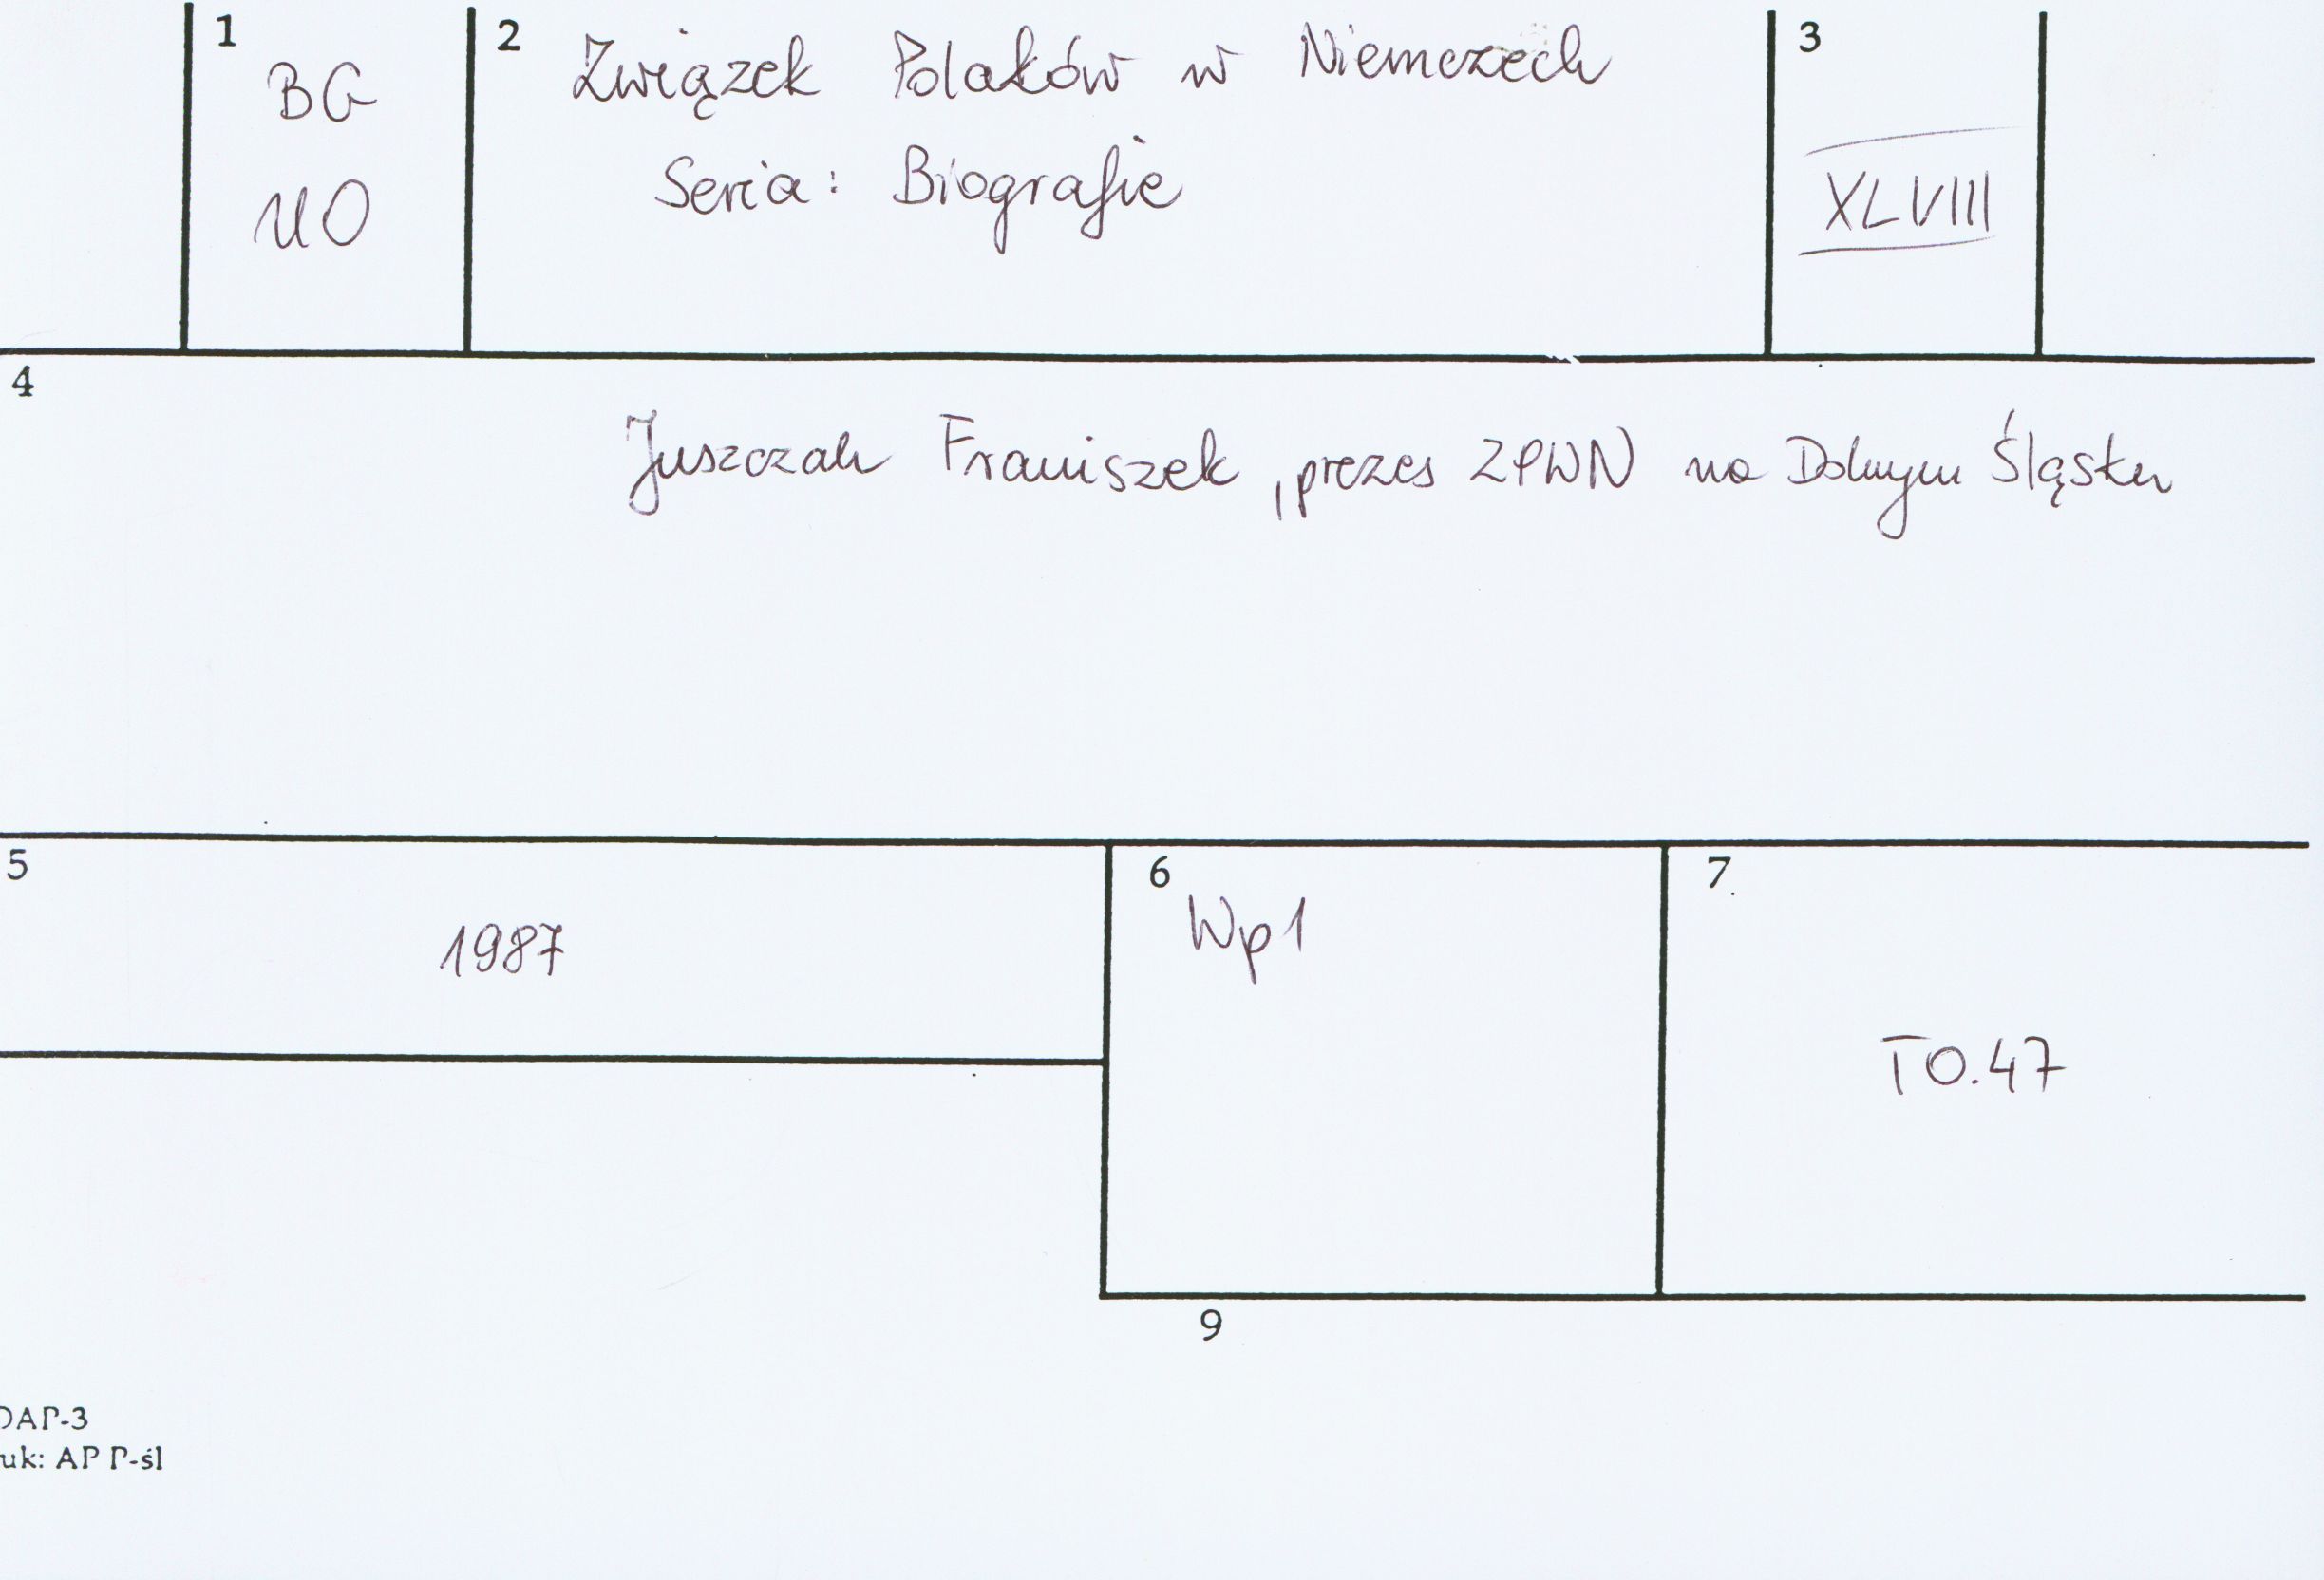 1
BG
UO
2
Związek Polaków w Niemczech
Seria: Biografie
3
XLVIII
4
Juszczak Franiszek, prezes ZPWN na Dolnym Śląsku
5
1987
6
Wp1
7
TO.47
9
DAP-3
uk: AP P-śl